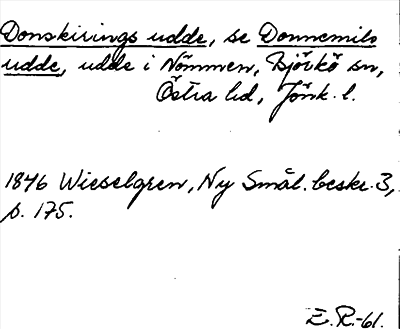 Donskirings udde, se Donnemils
udde, udde i Nömmen, Björkö sn,
Östra hd, Jönk. l.
1846 Wieselgren, Ny Smål. beskr. 3,
p. 175.
E. R.-61.